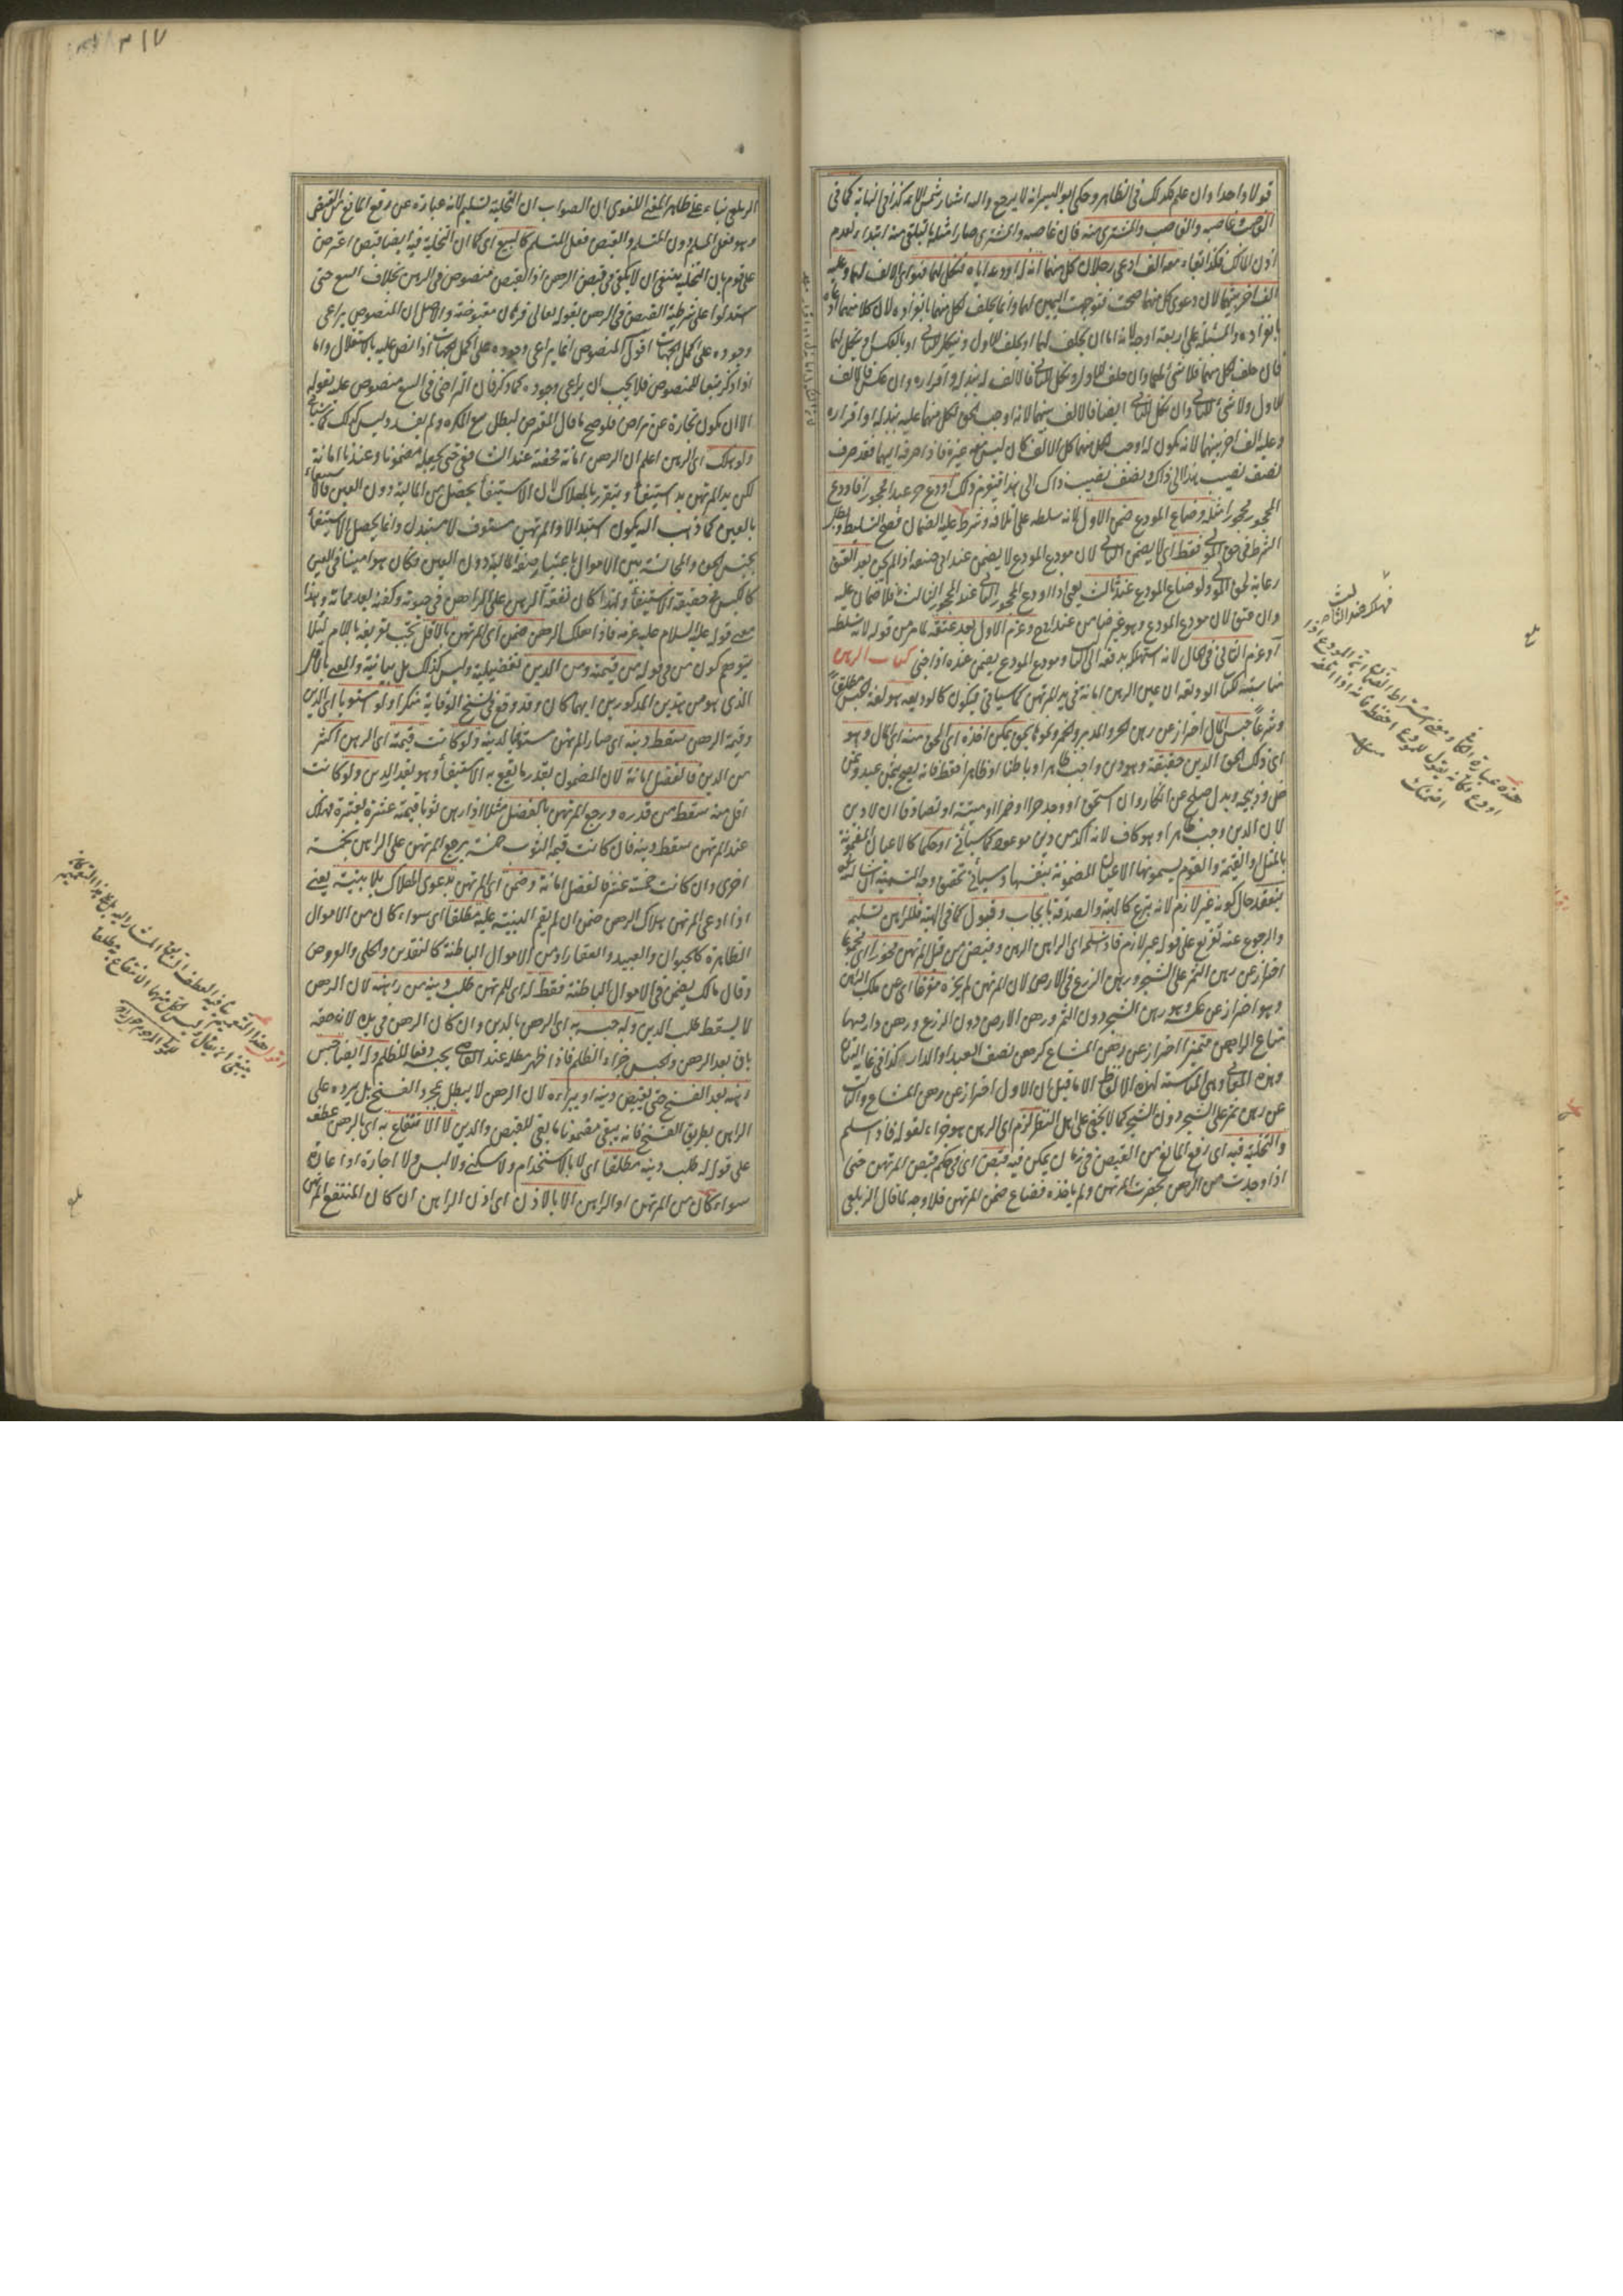 قولا واحدا وان علم فكذلك في الظاهر وحكى ابو اليسر انه لا يرجع واليه اشار شمس الائمة كذا في النهاية كما في
الغاصب وغاصبه والغاصب والمشترى منه فان غاصبه والمشترى صارا مثله بالتلقى منه ابتداء لعدم
اذن المالك فكذا بقاء معه الف ادعى رجلان كل منهما انه له اودعه اياه فنكل لهما فهو اى الالف لهما وعليه
الف اخر بينهما لان دعوى كل منهما صحت فتوجهت اليمين لهما وانما يحلف لكل منهما بانفراده لان كلا منهما ادعاه
بانفراده والمسئلة على اربعة اوجه لانه اما ان يحلف لهما او يحلف للاول وينكل للثانى او بالعكس او ينكل لهما
فان حلف لكل منهما فلا شئ لهما وان حلف للاول ونكل للثانى فالالف له ببذله او اقراره وان عكس فالالف
للاول ولا شئ للثانى وان نكل للثانى ايضا فالالف بينهما لانه اوجب الحق لكل منهما عليه ببذله او اقراره
وعليه الف اخر بينهما لانه يكون له اوجب لكل منهما كل الالف كان ليس معه غيره فاذا صرفه اليهما فقد صرف
نصف نصيب هذا الى ذاك ونصف نصيب ذاك الى هذا فيغرم ذلك اودع حر عبدا محجورا فاودع
المحجور محجورا مثله وضاع المودع ضمن الاول لانه سلطه على اتلافه وشرط عليه الضمان فصح التسليط وبطل
الشرط في حق المولى فقط اى لا يضمن الثانى لان مودع المودع لا يضمن عند ابى حنيفة اذا لم يجن بعد العتق
رعاية لحق المولى ولو ضاع المودع عند ثالث يعنى اذا اودع المحجور الثانى عند المحجور الثالث فلا ضمان عليه
وان عتق لان مودع المودع وهو غير ضامن عند ابى ح وغرم الاول بعد عتقه لما مر من قوله لانه سلطه
او غرم الثانى في الحال لانه استهلكه بدفعه الى الثالث ومودع المودع يضمن عنده اذا جنى كتاب الرهن
مناسبته لكتاب الوديعة ان عين الرهن امانة في يد المرتهن كما سياتى فيكون كالوديعة هو لغة الحبس مطلقا
وشرعا حبس المال احتراز عن رهن الحر والمدبر والخمر ونحوها بحق يمكن اخذه اى الحق منه اى المال وهو
اى ذلك الحق الدين حقيقة وهو دين واجب ظاهرا وباطنا او ظاهرا فقط فانه يصح بثمن عبد وثمن
خل وذبيحة وبدل صلح عن انكار وان استحق او وجد حرا او خمرا او ميتة او تصادقا ان لا دين
لان الدين وجب ظاهرا وهو كاف لانه اكد من دين موعود كما سيأتى او حكما كالاعيان المضمونة
بالمثل او القيمة والقوم يسمونها الاعيان المضمونة بنفسها وسيأتى تحقيق وجه التسمية ان شاء الله
ينعقد حال كونه غير لازم لانه تبرع كالهبة والصدقة بايجاب وقبول كما في الهبة فللراهن تسليمه
والرجوع عنه تفريع على قوله غير لازم فاذا سلمه اى الراهن الرهن وقبض من قبل المرتهن محوزا اى مجموعا
احتراز عن رهن الثمر على الشجر ورهن الزرع في الارض لان المرتهن لم يحزه مفرغا اى عن ملك الراهن
وهو احتراز عن عكسه وهو رهن الشجر دون الثمر ورهن الارض دون الزرع ورهن دار فيها
متاع الراهن متميزا احتراز عن رهن المشاع كرهن نصف العبد او الدار كذا في غاية البيان
وهذه المعانى هى المناسبة لهذه الالفاظ الا ما قيل بان الاول احتراز عن رهن المشاع والثالث
عن رهن ثمر على الشجر دون الشجر كما لا يخفى على اهل النظر لزم اى الرهن هو جزاء لقوله فاذا سلم
والتخلية فيه اى رفع المانع من القبض في زمان يمكن فيه قبض اى في حكم قبض المرتهن حتى
اذا وجدت من الراهن بحضرة المرتهن ولم ياخذه فضاع ضمن المرتهن فلا وجه لما قال الزيلعى
فهلك عند الثالث
هذه عبارة الكافى ومعنى اشتراط الضمان انه المودع اذا
اودع فكأنه يقول للمودع احفظه فانه اذا اتلفته
ضمنت
منه
بلغ
٣١٧
الزيلعى بناء على ظاهر المعنى اللغوى ان الصواب ان التخلية تسليم لانه عبارة عن رفع المانع من القبض
وهو فعل المسلم دون المتسلم والقبض فعل المتسلم كالبيع اى كما ان التخلية فيه ايضا قبض اعترض
على قوم بان التخلية ينبغى ان لا يكفى في قبض الرهن اذ القبض منصوص في الرهن بخلاف البيع حتى
استدلوا على شرطية القبض في الرهن بقوله تعالى فرهان مقبوضة والاصل ان المنصوص يراعى
وجوده على اكمل الجهات اقول المنصوص انما يراعى وجوده على اكمل الجهات اذا نص عليه بالاستقلال واما
اذا ذكر تبعا للمنصوص فلا يجب ان يراعى وجوده كما ذكر فان التراضى في البيع منصوص عليه بقوله
الا ان يكون تجارة عن تراض فلو صح ما قال المعترض لبطل بيع المكره ولم يفسد وليس كذلك كما سيأتى
ولو هلك اى الرهن اعلم ان الرهن امانة محضة عند الشافعى حتى يجعله مضمونا وعندنا امانة
لكن يد المرتهن يد استيفاء ويتقرر بالهلاك لان الاستيفاء يحصل من المالية دون العين فالاستيفاء
بالعين كما ذهب اليه يكون استبدالا والمرتهن مستوف لا مستبدل وانما يحصل الاستيفاء
بجنس الحق والمجانسة بين الاموال باعتبار صفة المالية دون العين فكان هو امينا في العين
كالكيس في حقيقة الاستيفاء ولهذا كان نفقة الرهن على الراهن في حيوته وكفنه بعد مماته وهذا
معنى قوله عليه السلام عليه غرمه فاذا هلك الرهن ضمن اى المرتهن بالاقل يجب تعريفه باللام لئلا
يتوهم كون من في قوله من قيمته ومن الدين تفضيلية وليس كذلك بل بيانية والمعنى بالاقل
الذى هو من هذين المذكورين ايهما كان وقد وقع في نسخ الوقاية منكرا ولو استويا اى الدين
وقيمة الرهن سقط دينه اى صار المرتهن مستوفيا لدينه ولو كانت قيمته اى الرهن اكثر
من الدين فالفضل امانة لان المضمون بقدر ما يقع به الاستيفاء وهو بقدر الدين ولو كانت
اقل منه سقط من قدره ورجع المرتهن بالفضل مثلا اذا رهن ثوبا قيمته عشرة بعشرة فهلك
عند المرتهن سقط دينه فان كانت قيمة الثوب خمسة يرجع المرتهن على الراهن بخمسة
اخرى وان كانت خمسة عشر فالفضل امانة وضمن اى المرتهن بدعوى الهلاك بلا بينة يعنى
اذا ادعى المرتهن هلاك الرهن ضمن ان لم يقم البينة عليه مطلقا اى سواء كان من الاموال
الظاهرة كالحيوان والعبيد والعقار او من الاموال الباطنة كالنقدين والحلى والعروض
وقال مالك يضمن في الاموال الباطنة فقط له اى للمرتهن طلب دينه من راهنه لان الرهن
لا يسقط طلب الدين وله حبسه به اى الرهن بالدين وان كان الرهن في يده لانه حقه
باق بعد الرهن والحبس جزاء الظلم فاذا ظهر مطله عند القاضى يحبسه دفعا للظلم وله ايضا حبس
رهنه بعد الفسخ حتى يقبض دينه او يبرئه لان الرهن لا يبطل بمجرد الفسخ بل برده على
الراهن بطريق الفسخ فانه يبقى مضمونا ما بقى القبض والدين لا الانتفاع به اى بالرهن عطف
على قوله طلب دينه مطلقا اى لا بالاستخدام ولا سكنى ولا لبس ولا اجارة او اعارة
سواء كان من المرتهن او الراهن الا بالاذن اى اذن الراهن ان كان المنتفع المرتهن
بلغ